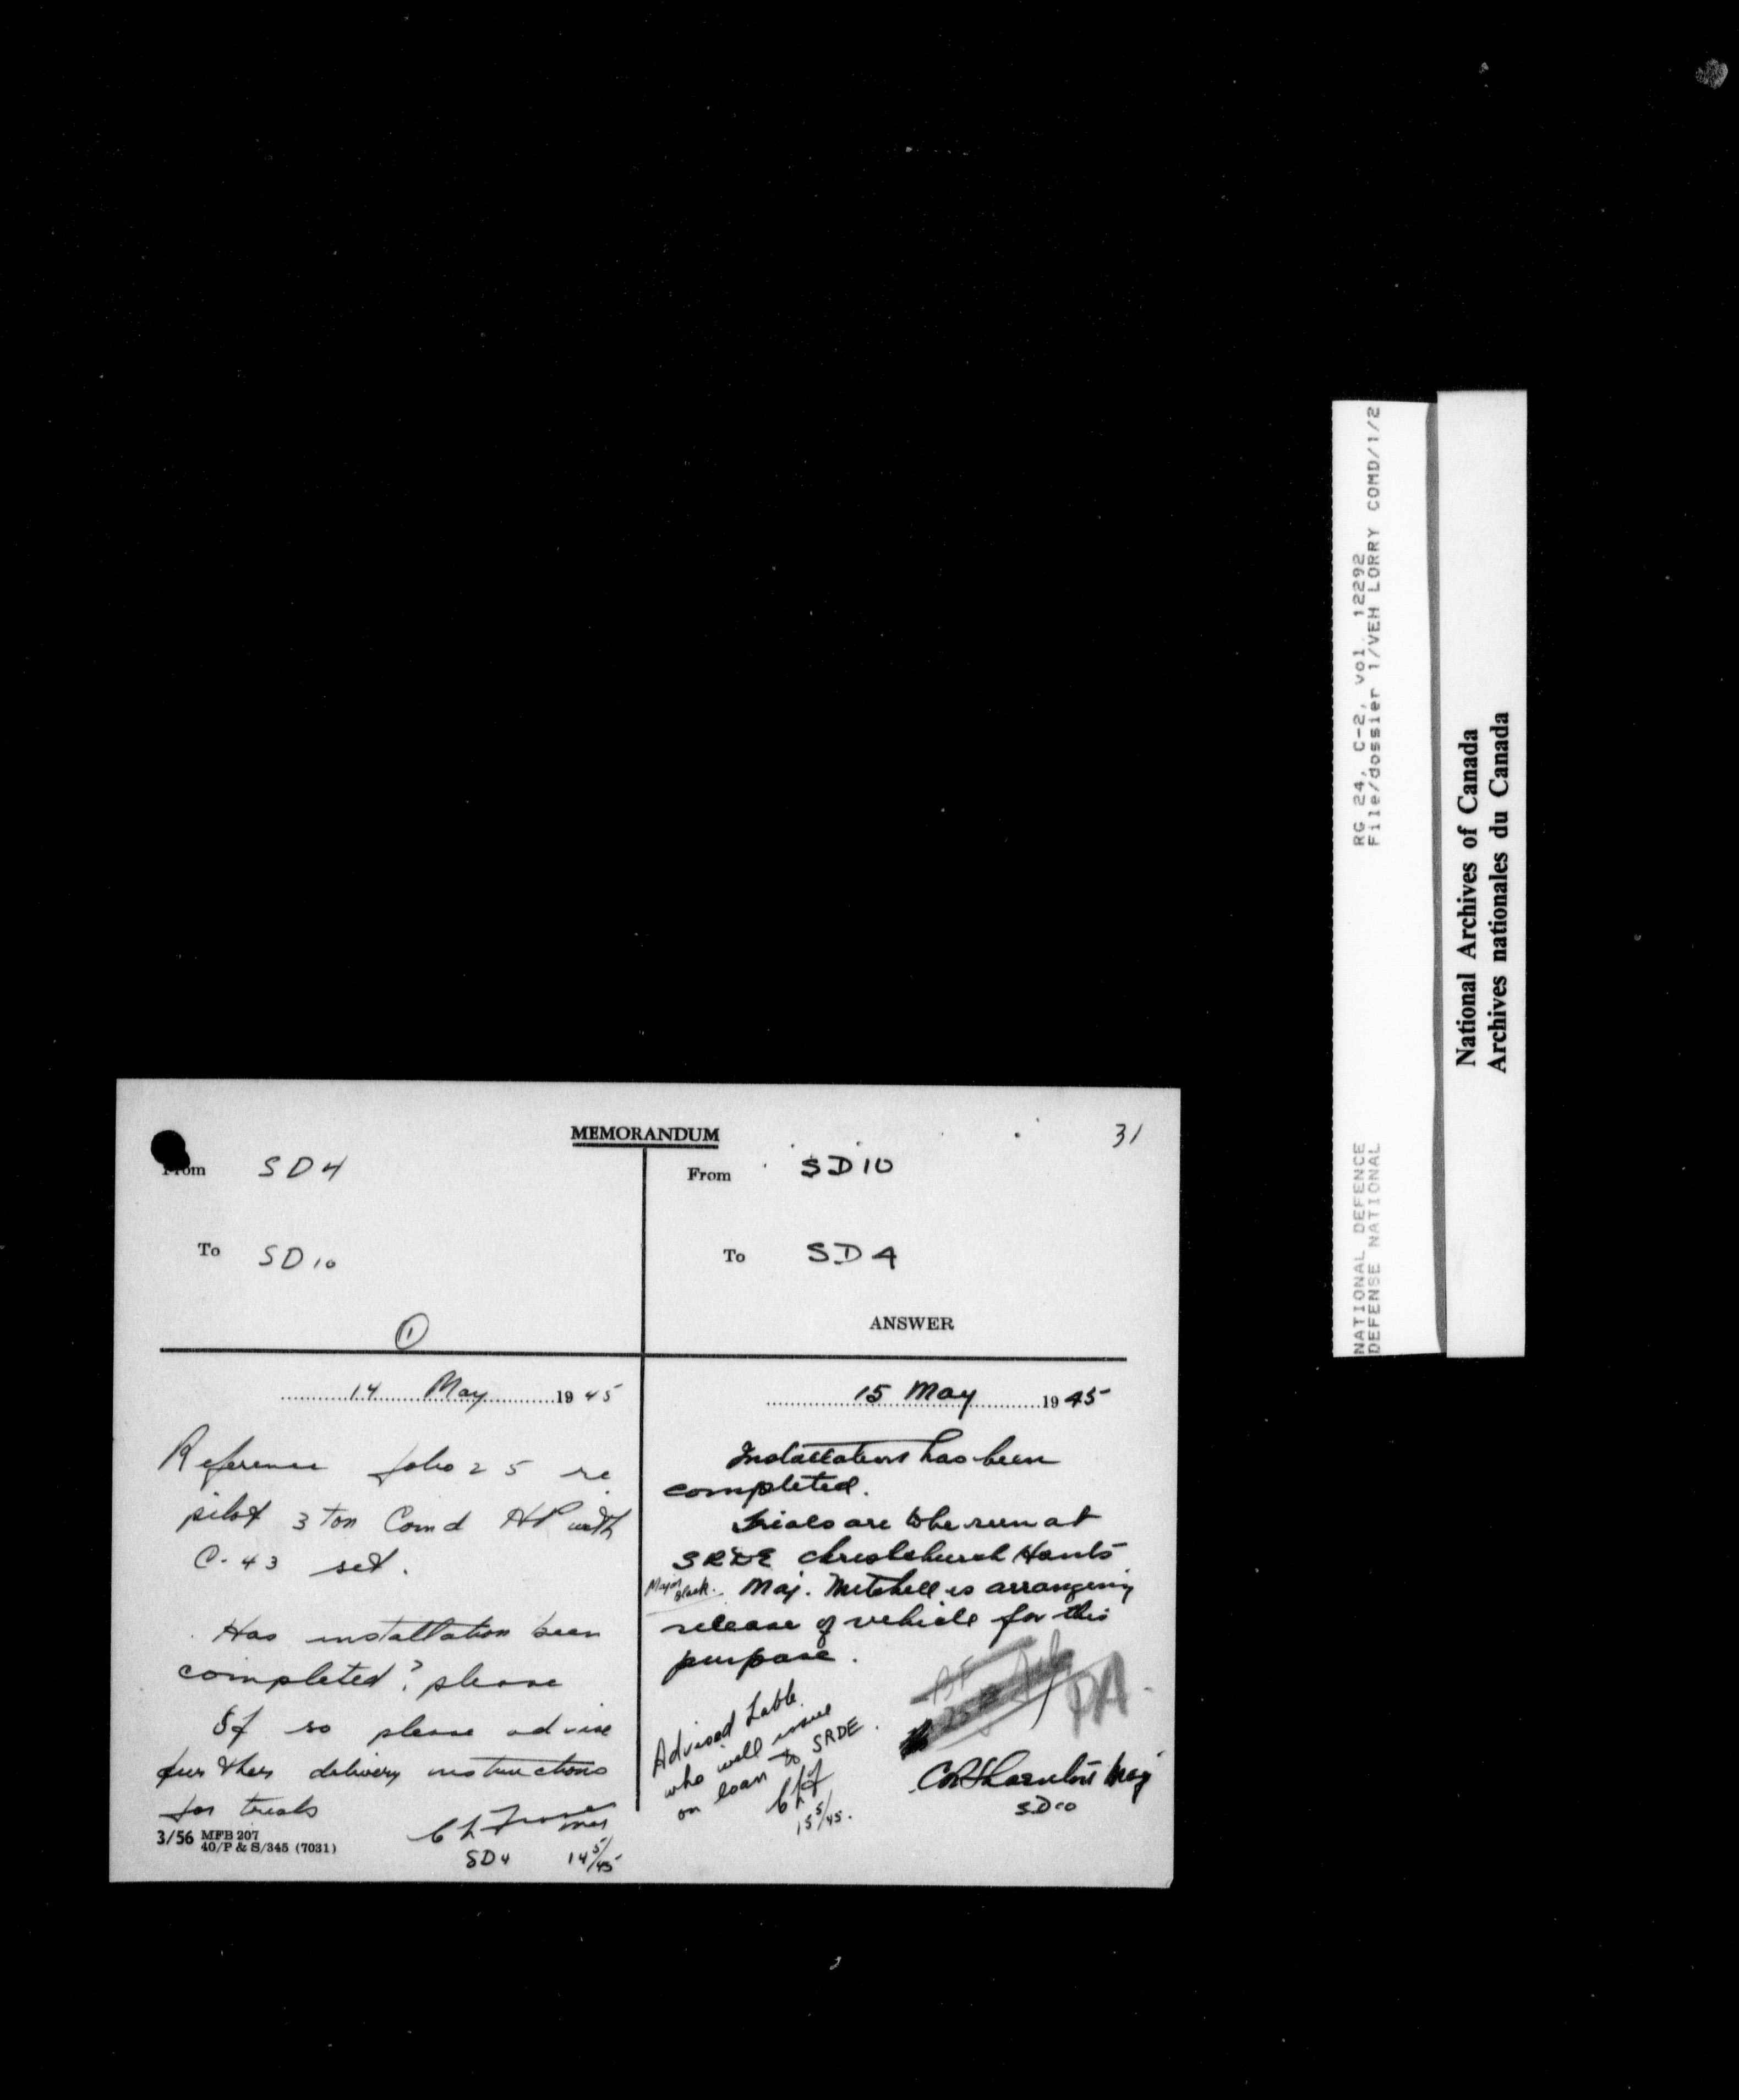 MEMORANDUM
31
From SD4
To SD10
1
14 May 1945
Reference folio 25 re
pilot 3 ton Comd HP with
C-43 set.
Has installation been
completed? please
If so please advise
further delivery instructions
for trials
SD4 14/5/45
3/56 MFB 207
40/P & S/345 (7031)
From SD10
To SD4
ANSWER
15 May 1945
Installation has been
completed.
Trials are to be run at
SRDE Christchurch Hants
Major Black. Maj. Mitchell is arranging
release of vehicle for this
purpose.
BF
25
PA
Advised
who will issue
on loan to SRDE.
15/5/45.
Maj
SD10
RG 24, C-2, vol. 12292
File/dossier 1/VEH LORRY COMD/1/2
NATIONAL DEFENCE
DEFENSE NATIONAL
National Archives of Canada
Archives nationales du Canada